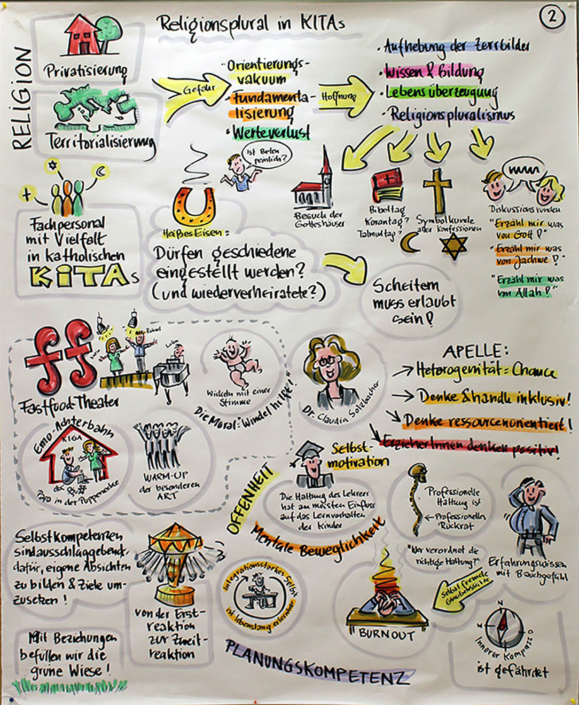 Religionsplural in KITAs
2
RELIGION
Privatisierung
Territorialisierung
Gefahr
-Orientierungs-
vakuum
-Fundamenta-
lisierung
-Werteverlust
Hoffnung
·Aufhebung der Zerrbilder
·Wissen & Bildung
·Lebensüberzeugung
·Religionspluralismus
Ist Beten
peinlich?
Fachpersonal
mit Vielfalt
in katholischen
KITAs
Heißes Eisen:
Dürfen geschiedene
eingestellt werden?
(und wiederverheiratete?)
Scheitern
muss erlaubt
sein!
Besuch der
Gotteshäuser
Bibeltag
Korantag?
Talmudtag?
Symbolkunde
aller Konfessionen
Diskussionsrunden
"Erzähl mir was
von Gott!"
"Erzähl mir was
von Jachwe!"
"Erzähl mir was
von Allah!"
ff
Fastfood Theater
Wickeln mit einer
Stimme
Die Moral: Windel hilft!"
Emo-Achterbahn
KIGA
Papa in der Puppenecke
WARM-UP
der besonderen
ART
Dr. Claudia
APELLE:
Heterogenität = Chance
Denke & handle inklusiv!
Denke ressourcenorientiert!
ErzieherInnen denken positiv!
Selbst-
motivation
Die Haltung des Lehrers
hat am meisten Einfluss
auf das Lernverhalten
der Kinder
OFFENHEIT
Mentale Beweglichkeit
Professionelle
Haltung ist
Professionelles
Rückrat
"Wer verordnet die
richtige Haltung?"
Erfahrungswissen
mit Bauchgefühl
Selbstkompetenzen
sind ausschlaggebend
dafür, eigene Absichten
zu bilden & Ziele um-
zusetzen!
von der Erst-
reaktion
zur Zweit-
reaktion
BURNOUT
N
Innerer Kompass
ist gefährdet
Mit Beziehungen
befüllen wir die
grüne Wiese!
PLANUNGSKOMPETENZ